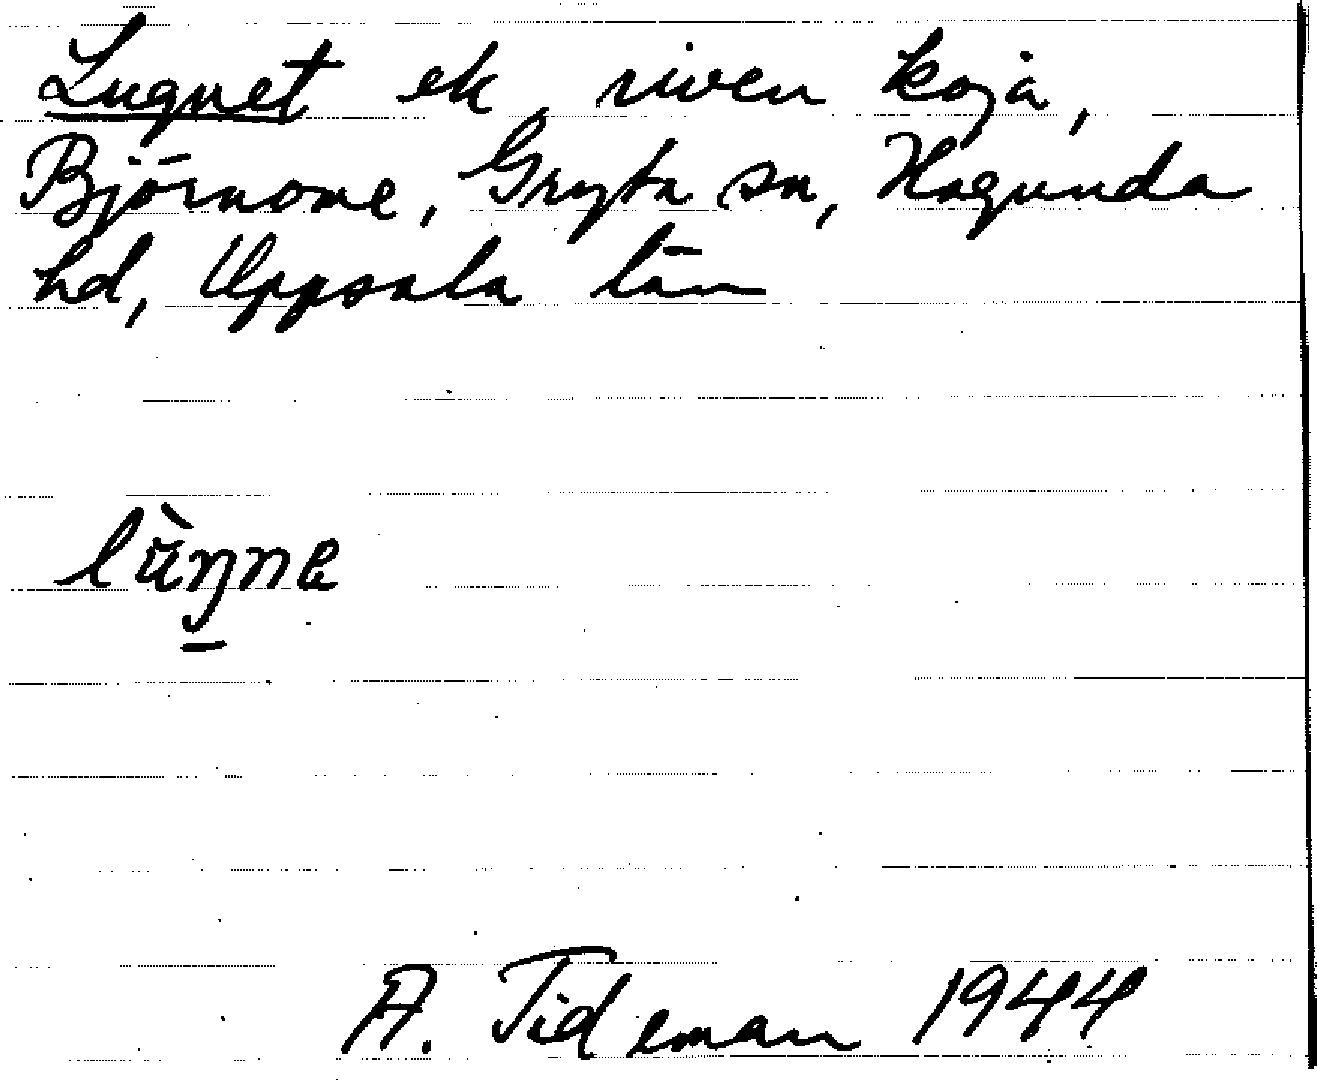 Lugnet ek, riven koja,
Björnome, Gryta sn, Hagunda
hd, Uppsala län
lùŋne
A. Tideman 1944